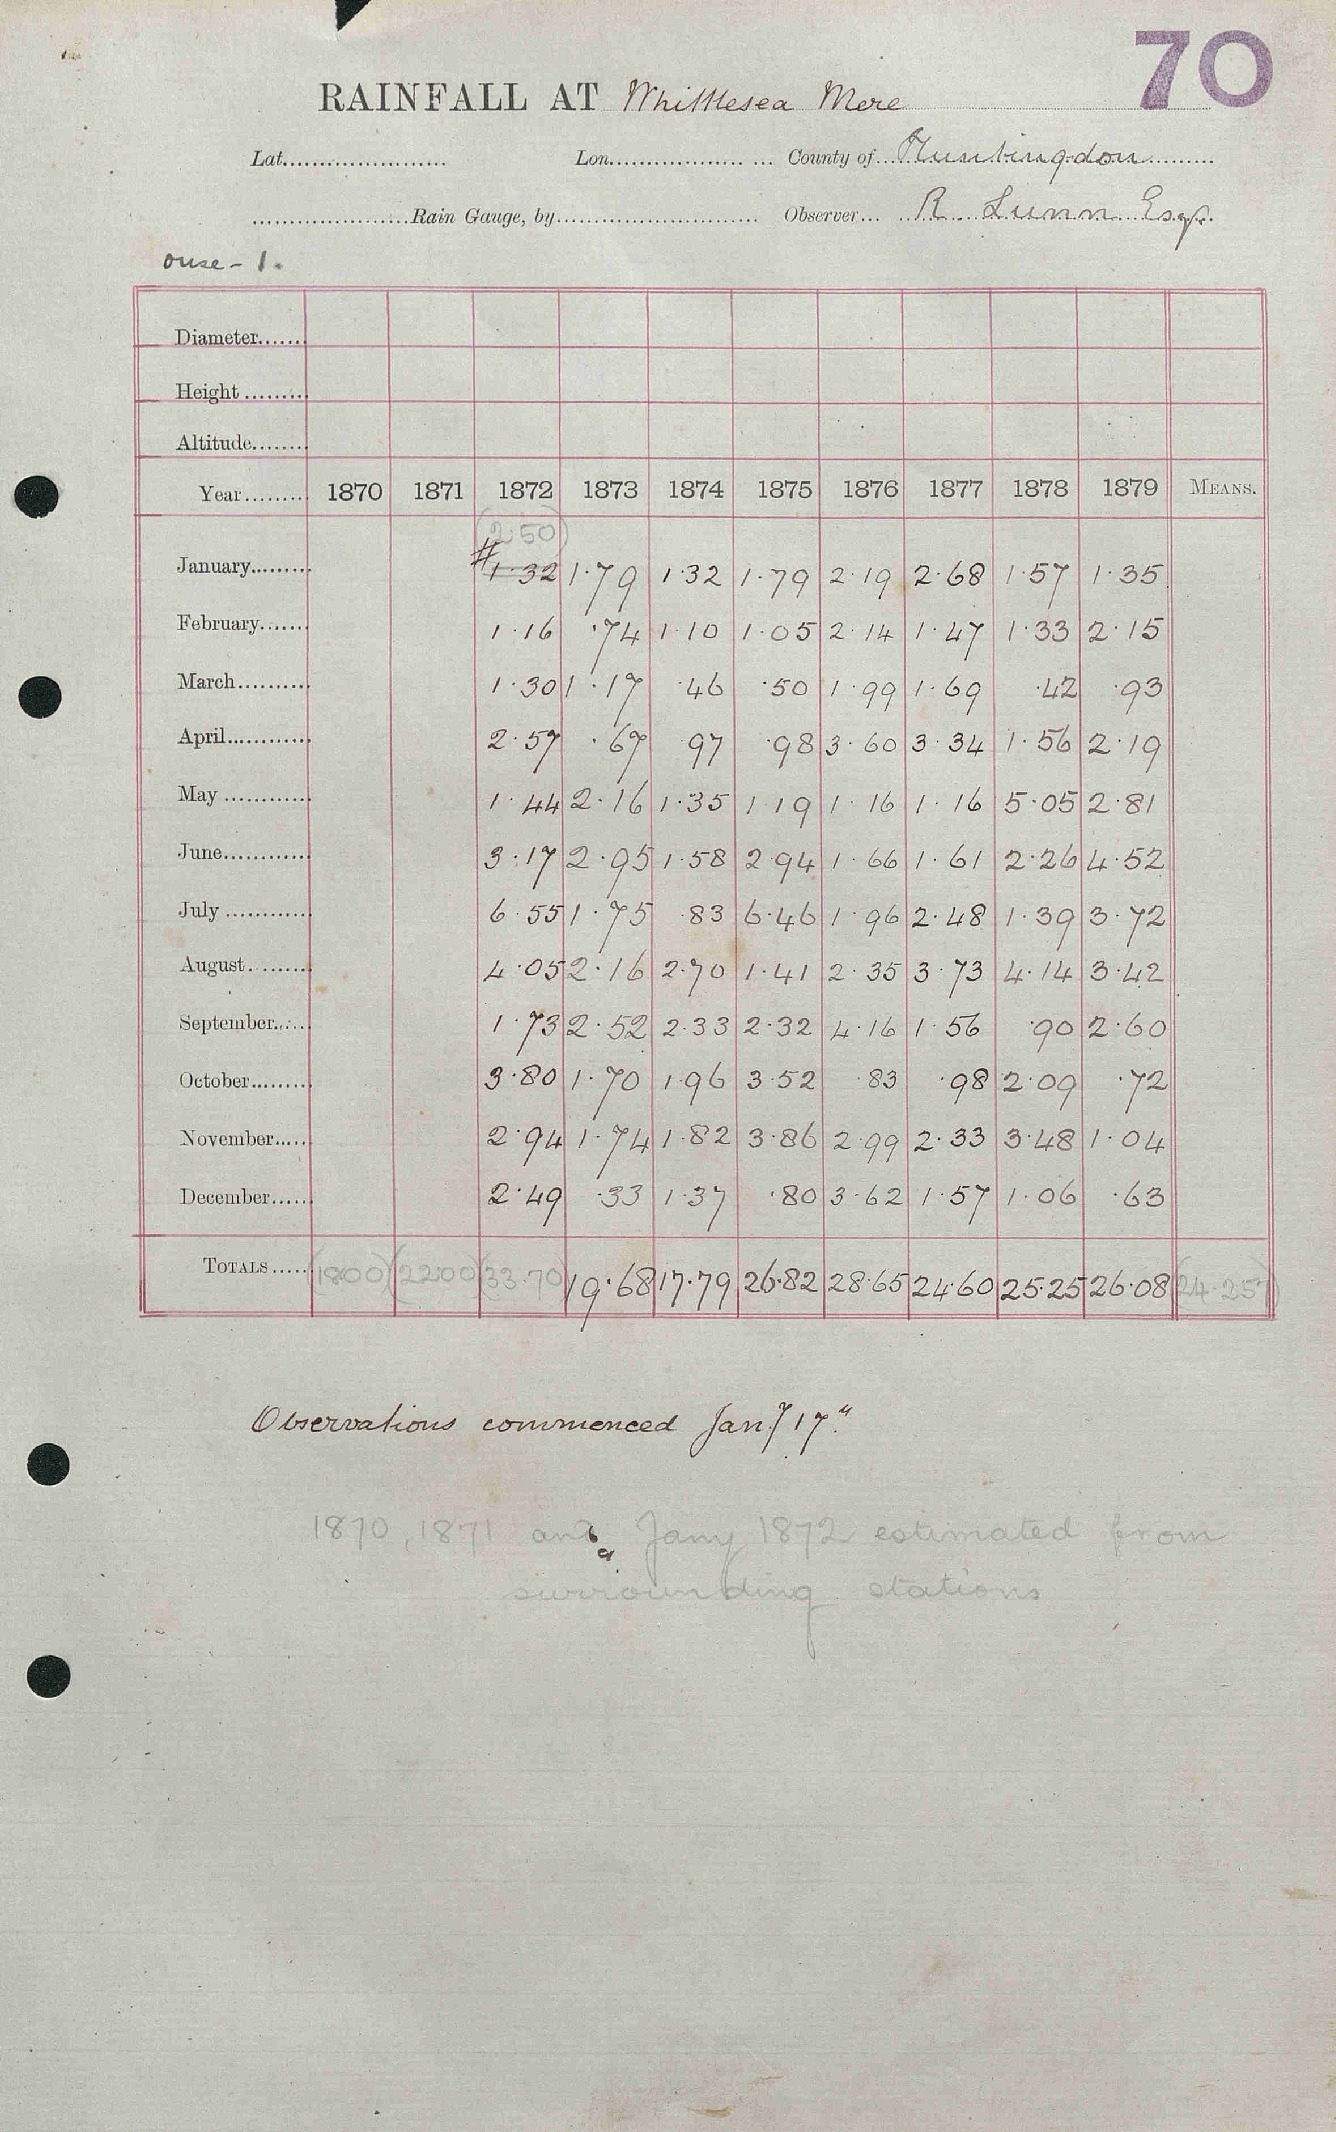 70
RAINFALL AT Whittlesea Mere
Lat. Lon. County of Huntingdon
Rain Gauge, by Observer R Lunn Esqr.
ouse - 1.
Diameter
Height
Altitude
Year 1870 1871 1872 1873 1874 1875 1876 1877 1878 1879 MEANS.
(2.50)
January # 1.32 1.79 1.32 1.79 2.19 2.68 1.57 1.35
February 1.16 .74 1.10 1.05 2.14 1.47 1.33 2.15
March 1.30 1.17 .46 .50 1.99 1.69 .42 .93
April 2.57 .67 97 .98 3.60 3.34 1.56 2.19
May 1.44 2.16 1.35 1.19 1.16 1.16 5.05 2.81
June 3.17 2.95 1.58 2.94 1.66 1.61 2.26 4.52
July 6.55 1.75 .83 6.46 1.96 2.48 1.39 3.72
August 4.05 2.16 2.70 1.41 2.35 3.73 4.14 3.42
September 1.73 2.52 2.33 2.32 4.16 1.56 .90 2.60
October 3.80 1.70 1.96 3.52 .83 .98 2.09 .72
November 2.94 1.74 1.82 3.86 2.99 2.33 3.48 1.04
December 2.49 .33 1.37 .80 3.62 1.57 1.06 .63
TOTALS (1800) (2200) (33.70) 19.68 17.79 26.82 28.65 24.60 25.25 26.08 (24.257)
Observations commenced Jany 17"
1870, 1871 and Jany 1872 estimated from
surrounding stations